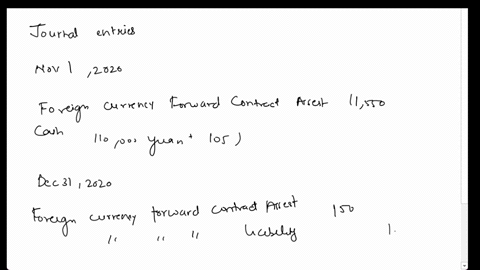 Journal entries
Nov 1, 2020
Foreign currency Forward Contract Asset 11,550
Cash
110,000 yuan * 105)
Dec 31, 2020
Foreign currency forward contract Asset 150
" " " liability 1